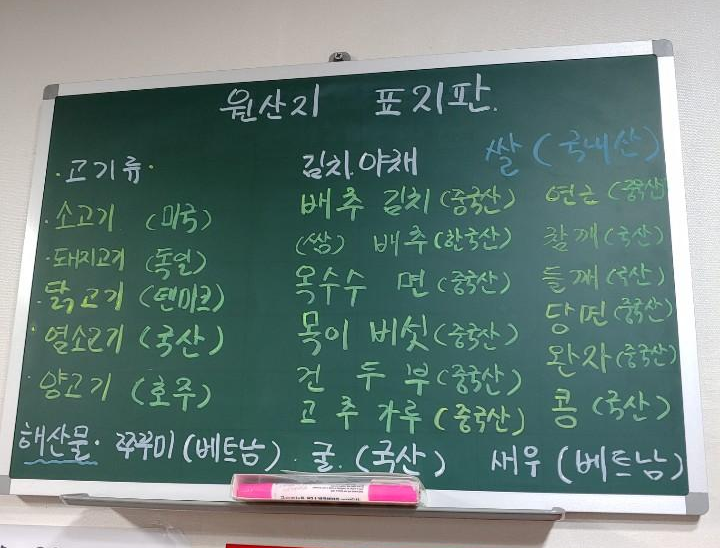 원산지 표지판.
· 고기류 ·
· 소고기 (미국)
· 돼지고기 (독일)
· 닭고기 (덴마크)
· 열소고기 (국산)
· 양고기 (호주)
김치.야채
배추 김치 (중국산)
(쌈) 배추 (한국산)
옥수수 면 (중국산)
목이 버섯 (중국산)
건 두 부 (중국산)
고 추 가루 (중국산)
쌀 (국내산)
연근 (중국산)
참깨 (국산)
들깨 (국산)
당면 (중국산)
완자 (중국산)
콩 (국산)
해산물 · 쭈꾸미 (베트남) . 굴. (국산) 새우 (베트남)